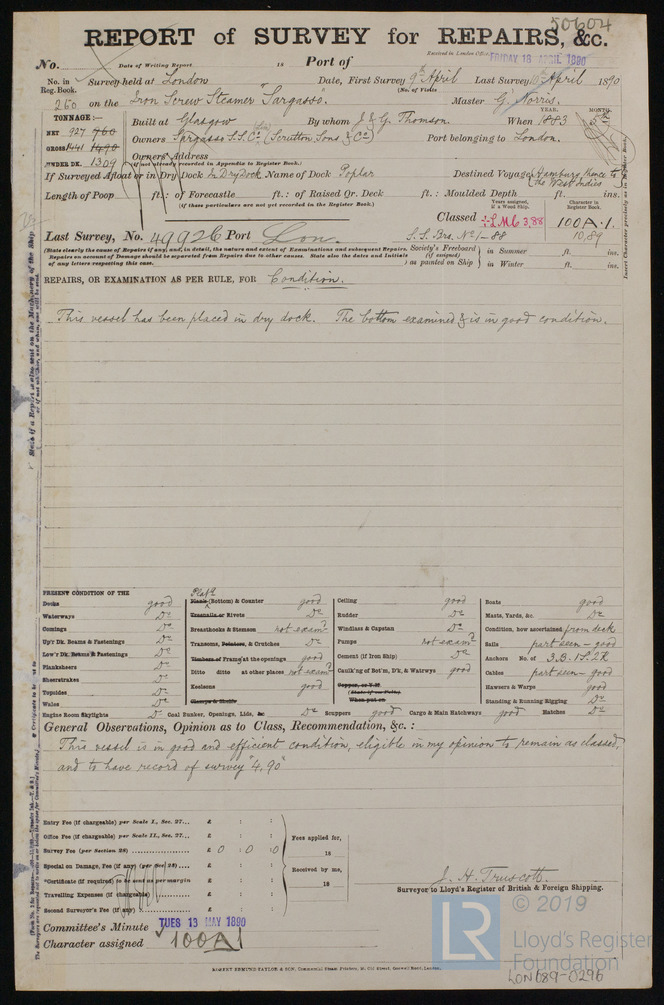 50604
REPORT of SURVEY for REPAIRS, &c.
Received in London Office, FRIDAY 18 APRIL 1890
No. Date of Writing Report 18 Port of
No. in Reg. Book. Survey held at London Date, First Survey 9th April Last Survey April 1890
(No. of Visits
260 on the Iron Screw Steamer "Sargasso". Master G. Norris.
TONNAGE:— YEAR. MONTH.
NET 927 760 Built at Glasgow By whom J & G. Thomson. When 1883
GROSS 1441 1490 Owners Sargasso S.S. Co (Scrutton Sons & Co) Port belonging to London.
UNDER DK. 1309 Owners' Address
(if not already recorded in Appendix to Register Book.)
If Surveyed Afloat or in Dry Dock In Dry dock Name of Dock Poplar Destined Voyage Hamburg thence to the West Indies
Length of Poop ft.: of Forecastle ft.: of Raised Qr. Deck ft.: Moulded Depth ft. ins.
(if these particulars are not yet recorded in the Register Book.)
Years assigned, if a Wood Ship. Character in Register Book.
Classed LMC 3,88 100A.1.
Last Survey, No. 49926 Port Lon. S.S. No 1-88 10,89
(State clearly the cause of Repairs if any, and, in detail, the nature and extent of Examinations and subsequent Repairs. Repairs on account of Damage should be separated from Repairs due to other causes. State also the dates and Initials of any letters respecting this case.)
Society's Freeboard (if assigned) as painted on Ship in Summer ft. ins.
in Winter ft. ins.
REPAIRS, OR EXAMINATION AS PER RULE, FOR Condition.
This vessel has been placed in dry dock. The bottom examined & is in good condition.
PRESENT CONDITION OF THE
Decks good
Waterways Do
Comings Do
Up'r Dk. Beams & Fastenings Do
Low'r Dk. Beams & Fastenings Do
Planksheers Do
Sheerstrakes Do
Topsides Do
Wales Do
Engine Room Skylights Do
Plats
Plank (Bottom) & Counter good
Treenails or Rivets Do
Breasthooks & Stemson not examd
Transoms, Pointers, & Crutches Do
Timbers of Frame at the openings good
Ditto ditto at other places not examd
Keelsons good
Clamps & Shelfs
Coal Bunker, Openings, Lids, &c. Do
Ceiling good
Rudder Do
Windlass & Capstan Do
Pumps not examd
Cement (if Iron Ship) Do
Caulk'ng of Bot'm, D'k, & Watrwys good
Copper, or Y.M.
(State if on Felt)
When put on
Scuppers good Cargo & Main Hatchways good
Boats good
Masts, Yards, &c. Do
Condition, how ascertained from deck
Sails part seen - good
Anchors No. of 3.B. 1S. 2K
Cables part seen - good
Hawsers & Warps good
Standing & Running Rigging Do
Hatches Do
General Observations, Opinion as to Class, Recommendation, &c. :
This vessel is in good and efficient condition, eligible in my opinion to remain as classed,
and to have record of survey "4,90"
Entry Fee (if chargeable) per Scale I., Sec. 27... £ : :
Office Fee (if chargeable) per Scale II., Sec. 27... £ : :
Survey Fee (per Section 28) £ 0 : 0 : 0
Special on Damage, Fee (if any) (per Sec 28) £ : :
*Certificate (if required) to be sent as per margin £ : :
Travelling Expenses (if chargeable) £ : :
Second Surveyor's Fee (if any) £ : :
Fees applied for,
18
Received by me,
18
J. H. Truscott
Surveyor to Lloyd's Register of British & Foreign Shipping.
Committee's Minute TUES 13 MAY 1890
Character assigned 100A1
ROBERT EDMUND TAYLOR & SON, Commercial Steam Printers, 19, Old Street, Goswell Road, London.
LR © 2019
Lloyd's Register
Foundation
LON689-0296